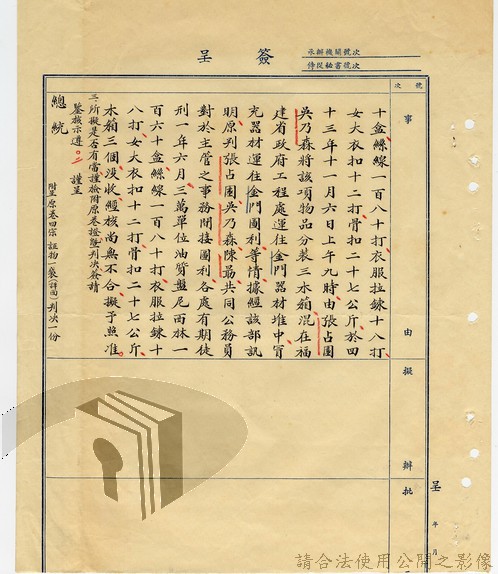 簽呈
承辦機關號次
侍從秘書號次
號次
事由
擬辦
批
呈 年 月
十盒絲線一百八十打衣服拉鍊十八打
女大衣扣十二打骨扣二十七公斤於四
十三年十一月六日上午九時由張占圍
吳乃森將該項物品分裝三木箱混在福
建省政府工程處運往金門器材堆中冒
充器材運往金門圖利等情據經該部訊
明原判張占圍吳乃森陳荔共同公務員
對於主管之事務間接圖利各處有期徒
刑一年六月三萬單位油質盤尼西林一
百六十盒絲線一百八十打衣服拉鍊十
八打女大衣扣十二打骨扣二十七公斤
木箱三個沒收經核尚無不合擬予照准
三、所擬是否有當謹檢附原卷證暨判決簽請
鑒核示遵。謹呈
總統
附呈原卷四宗証物一袋判決一份
請合法使用公開之影像